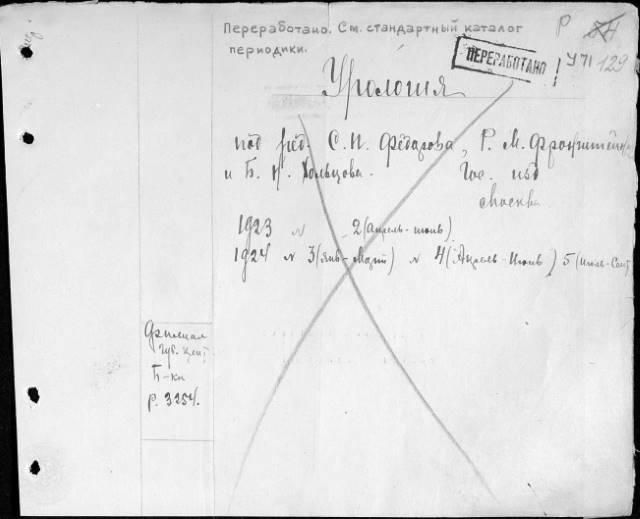 Переработано. См. стандартный каталог
периодики.
Р
ПЕРЕРАБОТАНО
! У 71
129
Урология
под ред. С. П. Фёдорова, Р. М. Фронштейна
и Б. Н. Хольцова. Гос. изд
Москва
1923 N 2 (апрель-июнь)
1924 N 3 (янв-Март) N 4 (Апрель-Июнь) 5 (Июль-Сент)
Филиал
Губ. Цент
Б-ки
Р. 3254.